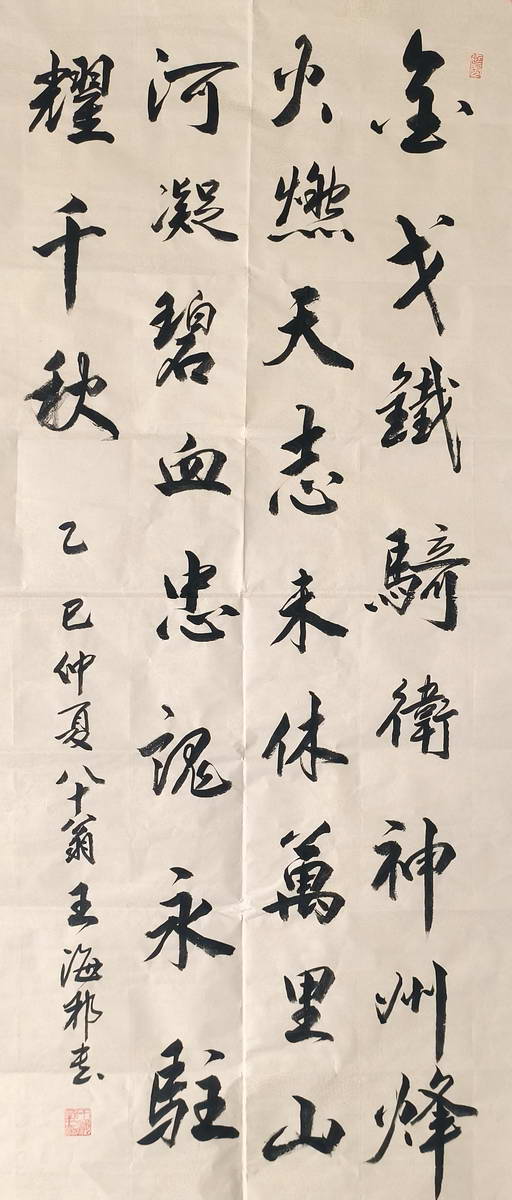 金戈鐵騎衛神州烽
火燃天志未休萬里山
河凝碧血忠魂永駐
耀千秋
乙巳仲夏八十翁王海邦書